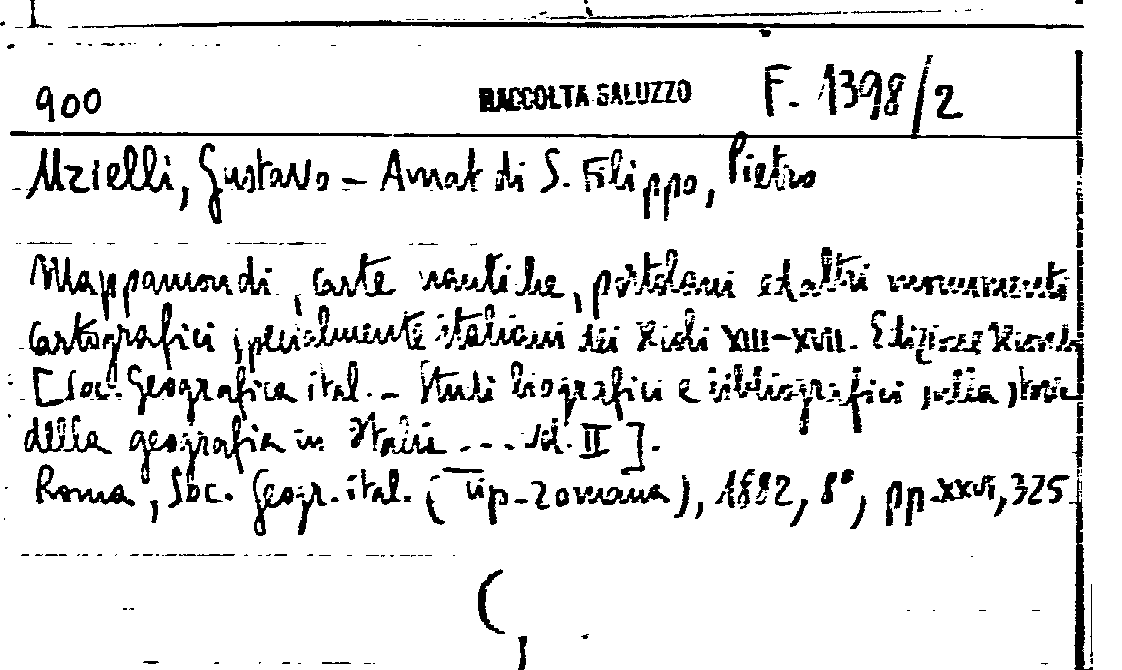 900 RACCOLTA SALUZZO F. 1398/2
Uzielli, Gustavo - Amat di S. Filippo, Pietro
Mappamondi, carte nautiche, portolani ed altri monumenti
cartografici specialmente italiani dei secoli XIII-XVII. Edizione
[Soc. Geografica ital. - Studi biografici e bibliografici sulla storia
della geografia in Italia ... vol. II].
Roma, Soc. Geogr. ital. (Tip. romana), 1882, 8°, pp. XXVI, 325